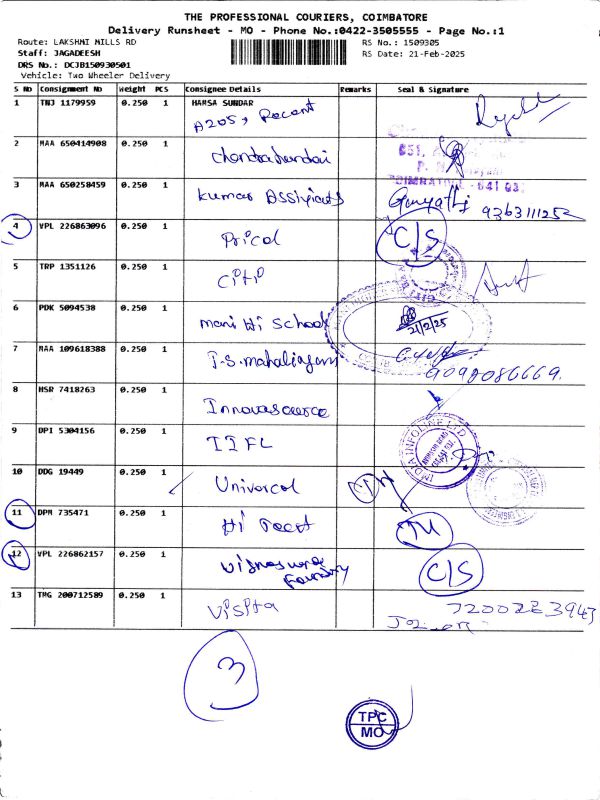 THE PROFESSIONAL COURIERS, COIMBATORE
Delivery Runsheet - MO - Phone No.:0422-3505555 - Page No.:1
Route: LAKSHMI MILLS RD
RS No.: 1509305
Staff: JAGADEESH
RS Date: 21-Feb-2025
DRS No.: DCJB150930501
Vehicle: Two Wheeler Delivery
S No Consignment No Weight PCS Consignee Details Remarks Seal & Signature
1 TNJ 1179959 0.250 1 HAMSA SUNDAR
A205,
2 MAA 650414908 0.250 1
651,
3 MAA 650258459 0.250 1 Kumar
COIMBATORE - 641 037
Gayathri
9363111252
4 VPL 226863096 0.250 1 Pricol C/S
5 TRP 1351126 0.250 1 Citi
6 PDK 5094538 0.250 1 Mani Hi School 21/2/25
7 MAA 109618388 0.250 1 T.S. 9092086669.
8 HSR 7418263 0.250 1 Innovasource
9 DPI 5304156 0.250 1 IIFL
INDIA INFOLINE LTD
10 DDG 19449 0.250 1 Universal
11 DPM 735471 0.250 1 Hi
12 VPL 226862157 0.250 1 C/S
Foundry
13 TMG 200712589 0.250 1
3
TPC
MO